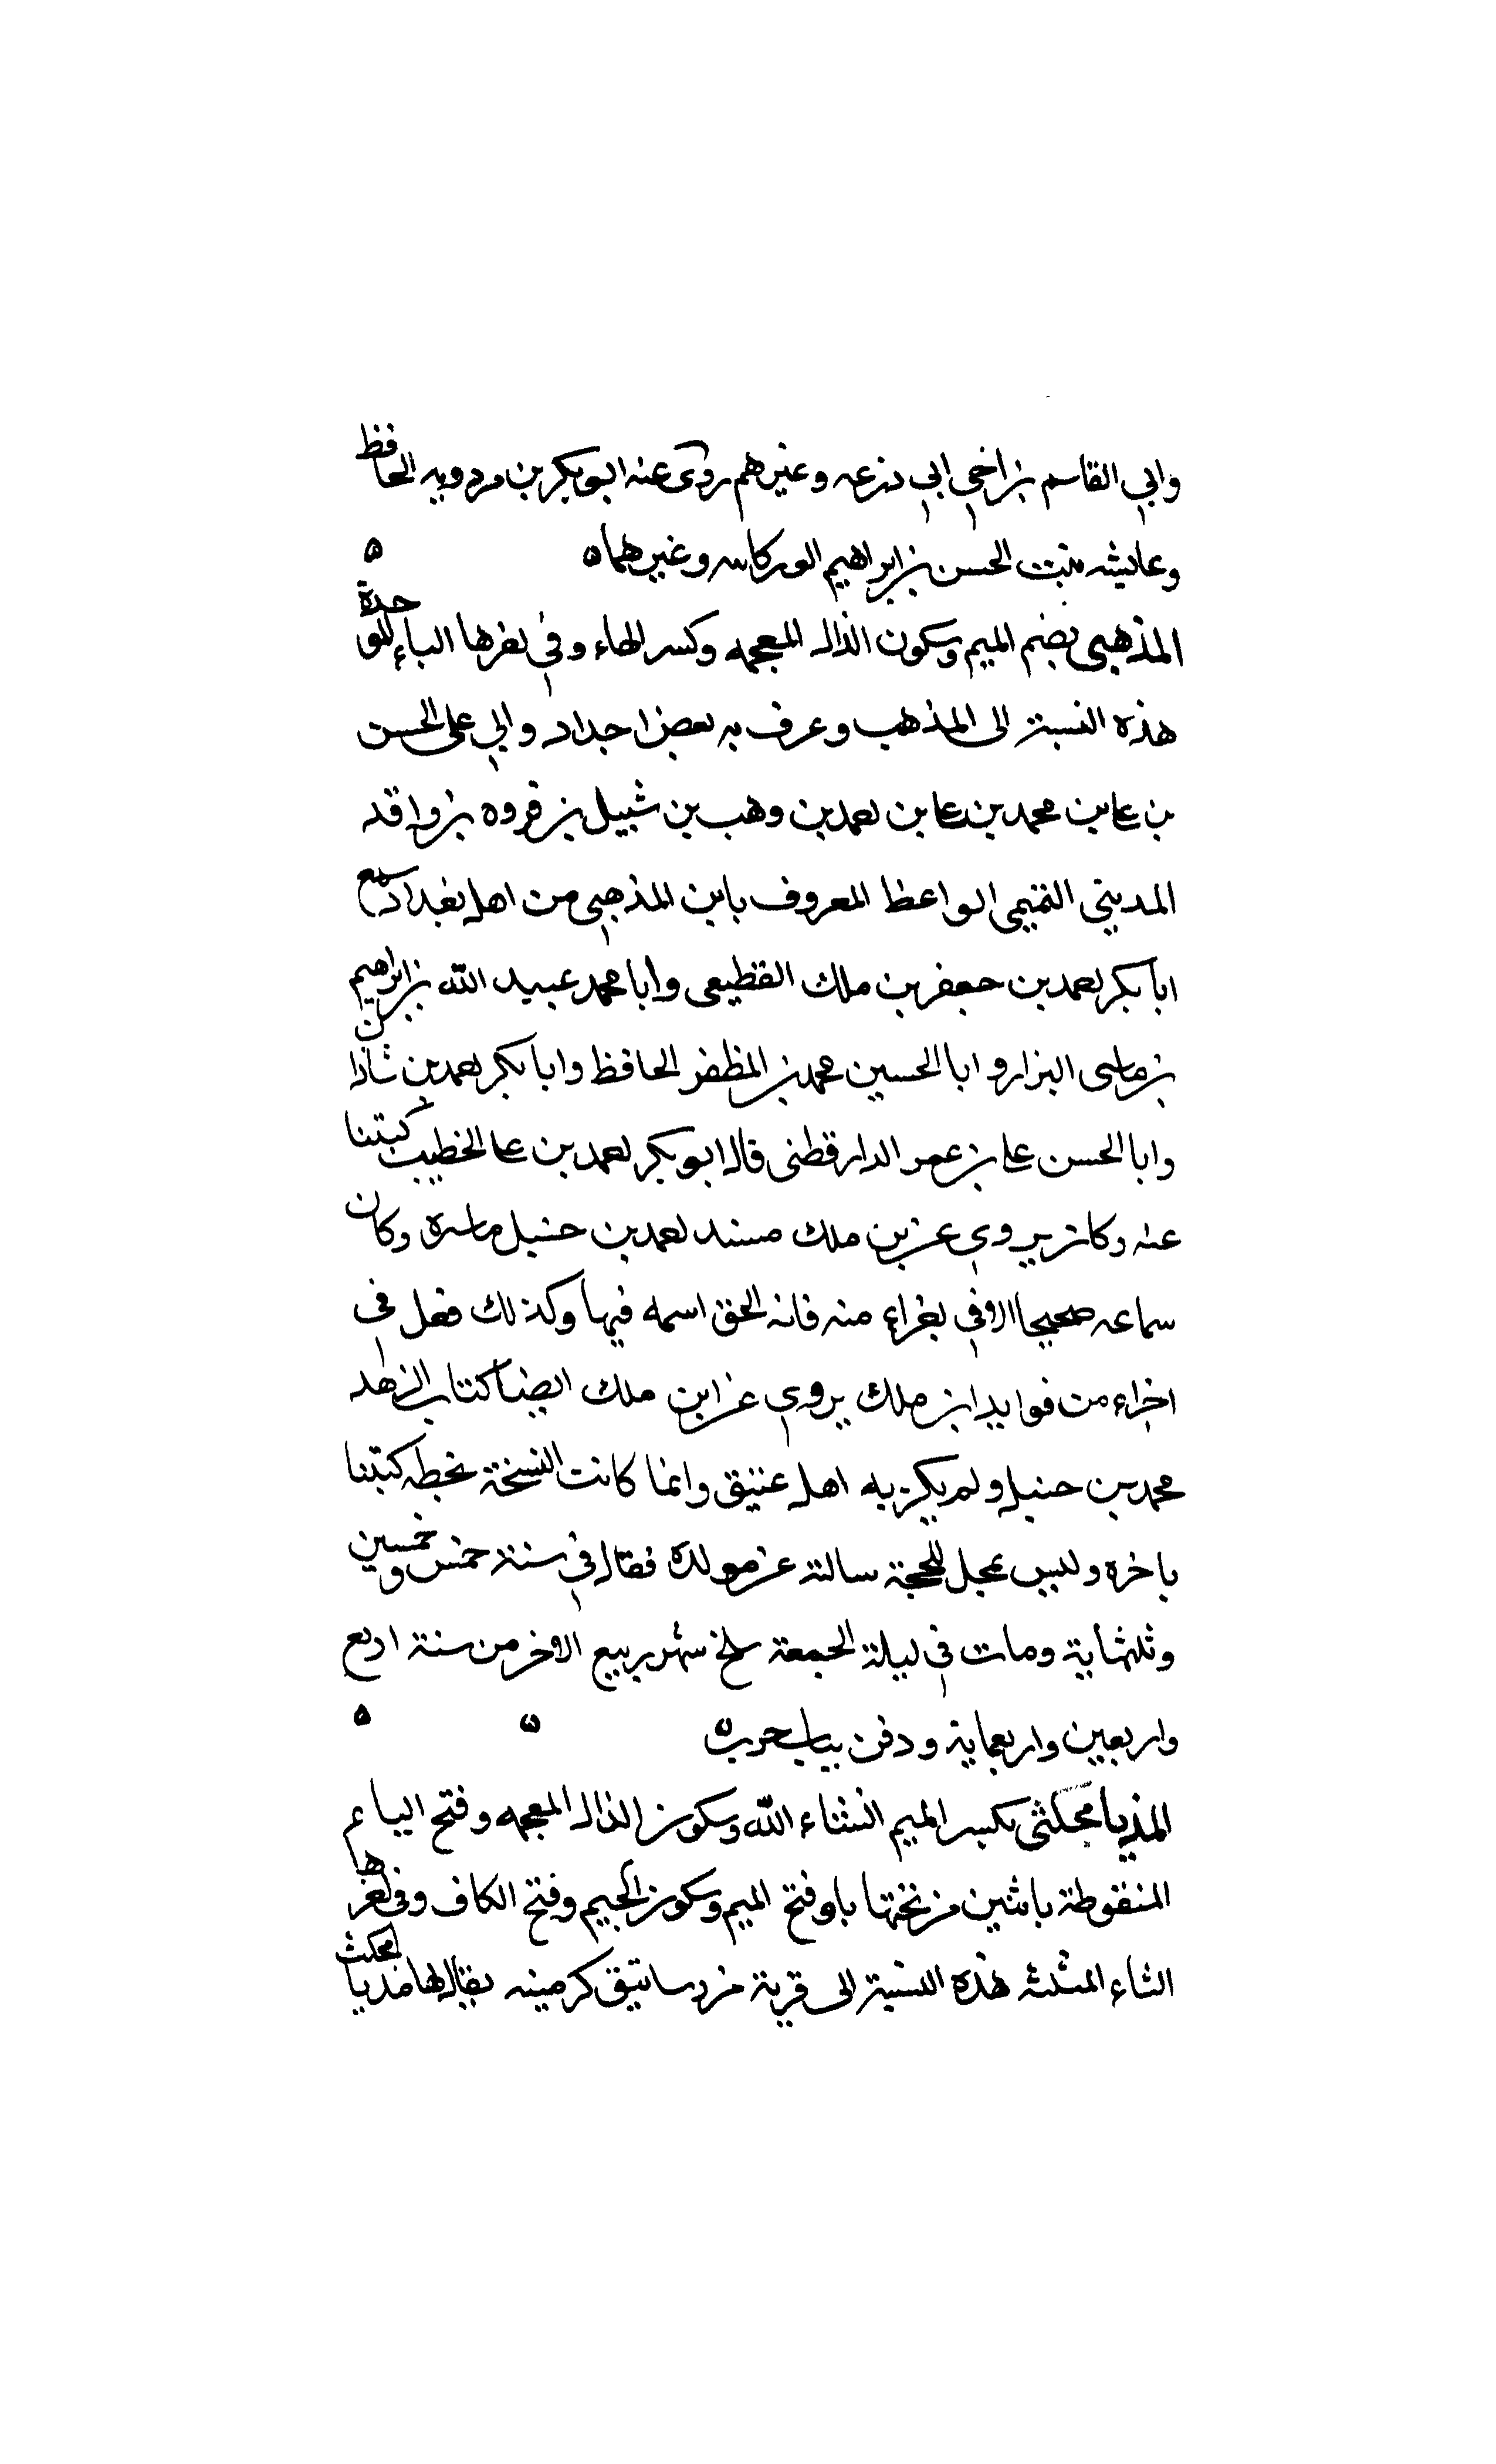 وابي القاسم بن اخي ابي زرعه وغيرهم روى عنه ابو بكر بن مردويه الحافظ
وعايشه بنت الحسن بن ابراهيم الوركانيه وغيرهما ه ه
المذهبي بضم الميم وسكون الذال المعجمه وكسر الهاء وفي اخرها الباء الموحدة
هذه النسبة الى المذهب وعرف به بعض اجداد وابي على الحسن
بن علي بن محمد بن علي بن احمد بن وهب بن شبيل بن فروه بن واقد
المديني التميمي الواعظ المعروف بابن المذهبي من اهل بغداد سمع
ابا بكر احمد بن جعفر بن ملك القطيعي وابا محمد عبيد الله بن ابراهيم
بن ماسي البزار وابا الحسين محمد بن المظفر الحافظ وابا بكر احمد بن شاذان
وابا الحسن علي بن عمر الدارقطني قال ابو بكر احمد بن علي الخطيب كتبنا
عنه وكان يروي عن بن ملك مسند احمد بن حنبل باسره وكان
سماعه صحيحا الا في اجزاء منه فانه الحق اسمه فيها وكذلك فعل في
اجزاء من فوايد ابن ملك يروي عن ابن ملك ايضا كتاب الزهد
محمد بن حنبل ولم يكن به اهل عتيق وانما كانت النسخة بخطه كتبنا
باخره وليس بمحل للحجة سالته عن مولده فقال في سنة خمس وخمسين
وثلثماية ومات في ليلة الجمعة سلخ شهر ربيع الاخر من سنة اربع
واربعين واربعماية ودفن بباب حرب ه ه ه
المذيامجكثي بكسر الميم انشاء الله وسكون الذال المعجمه وفتح الياء
المنقوطة باثنين من تحتها باوفتح الميم وسكون الجيم وفتح الكاف وفي اخرها
الثاء المثلثه هذه النسبة الى قرية من رساتيق كرمينه يقال لها مذيامجكث